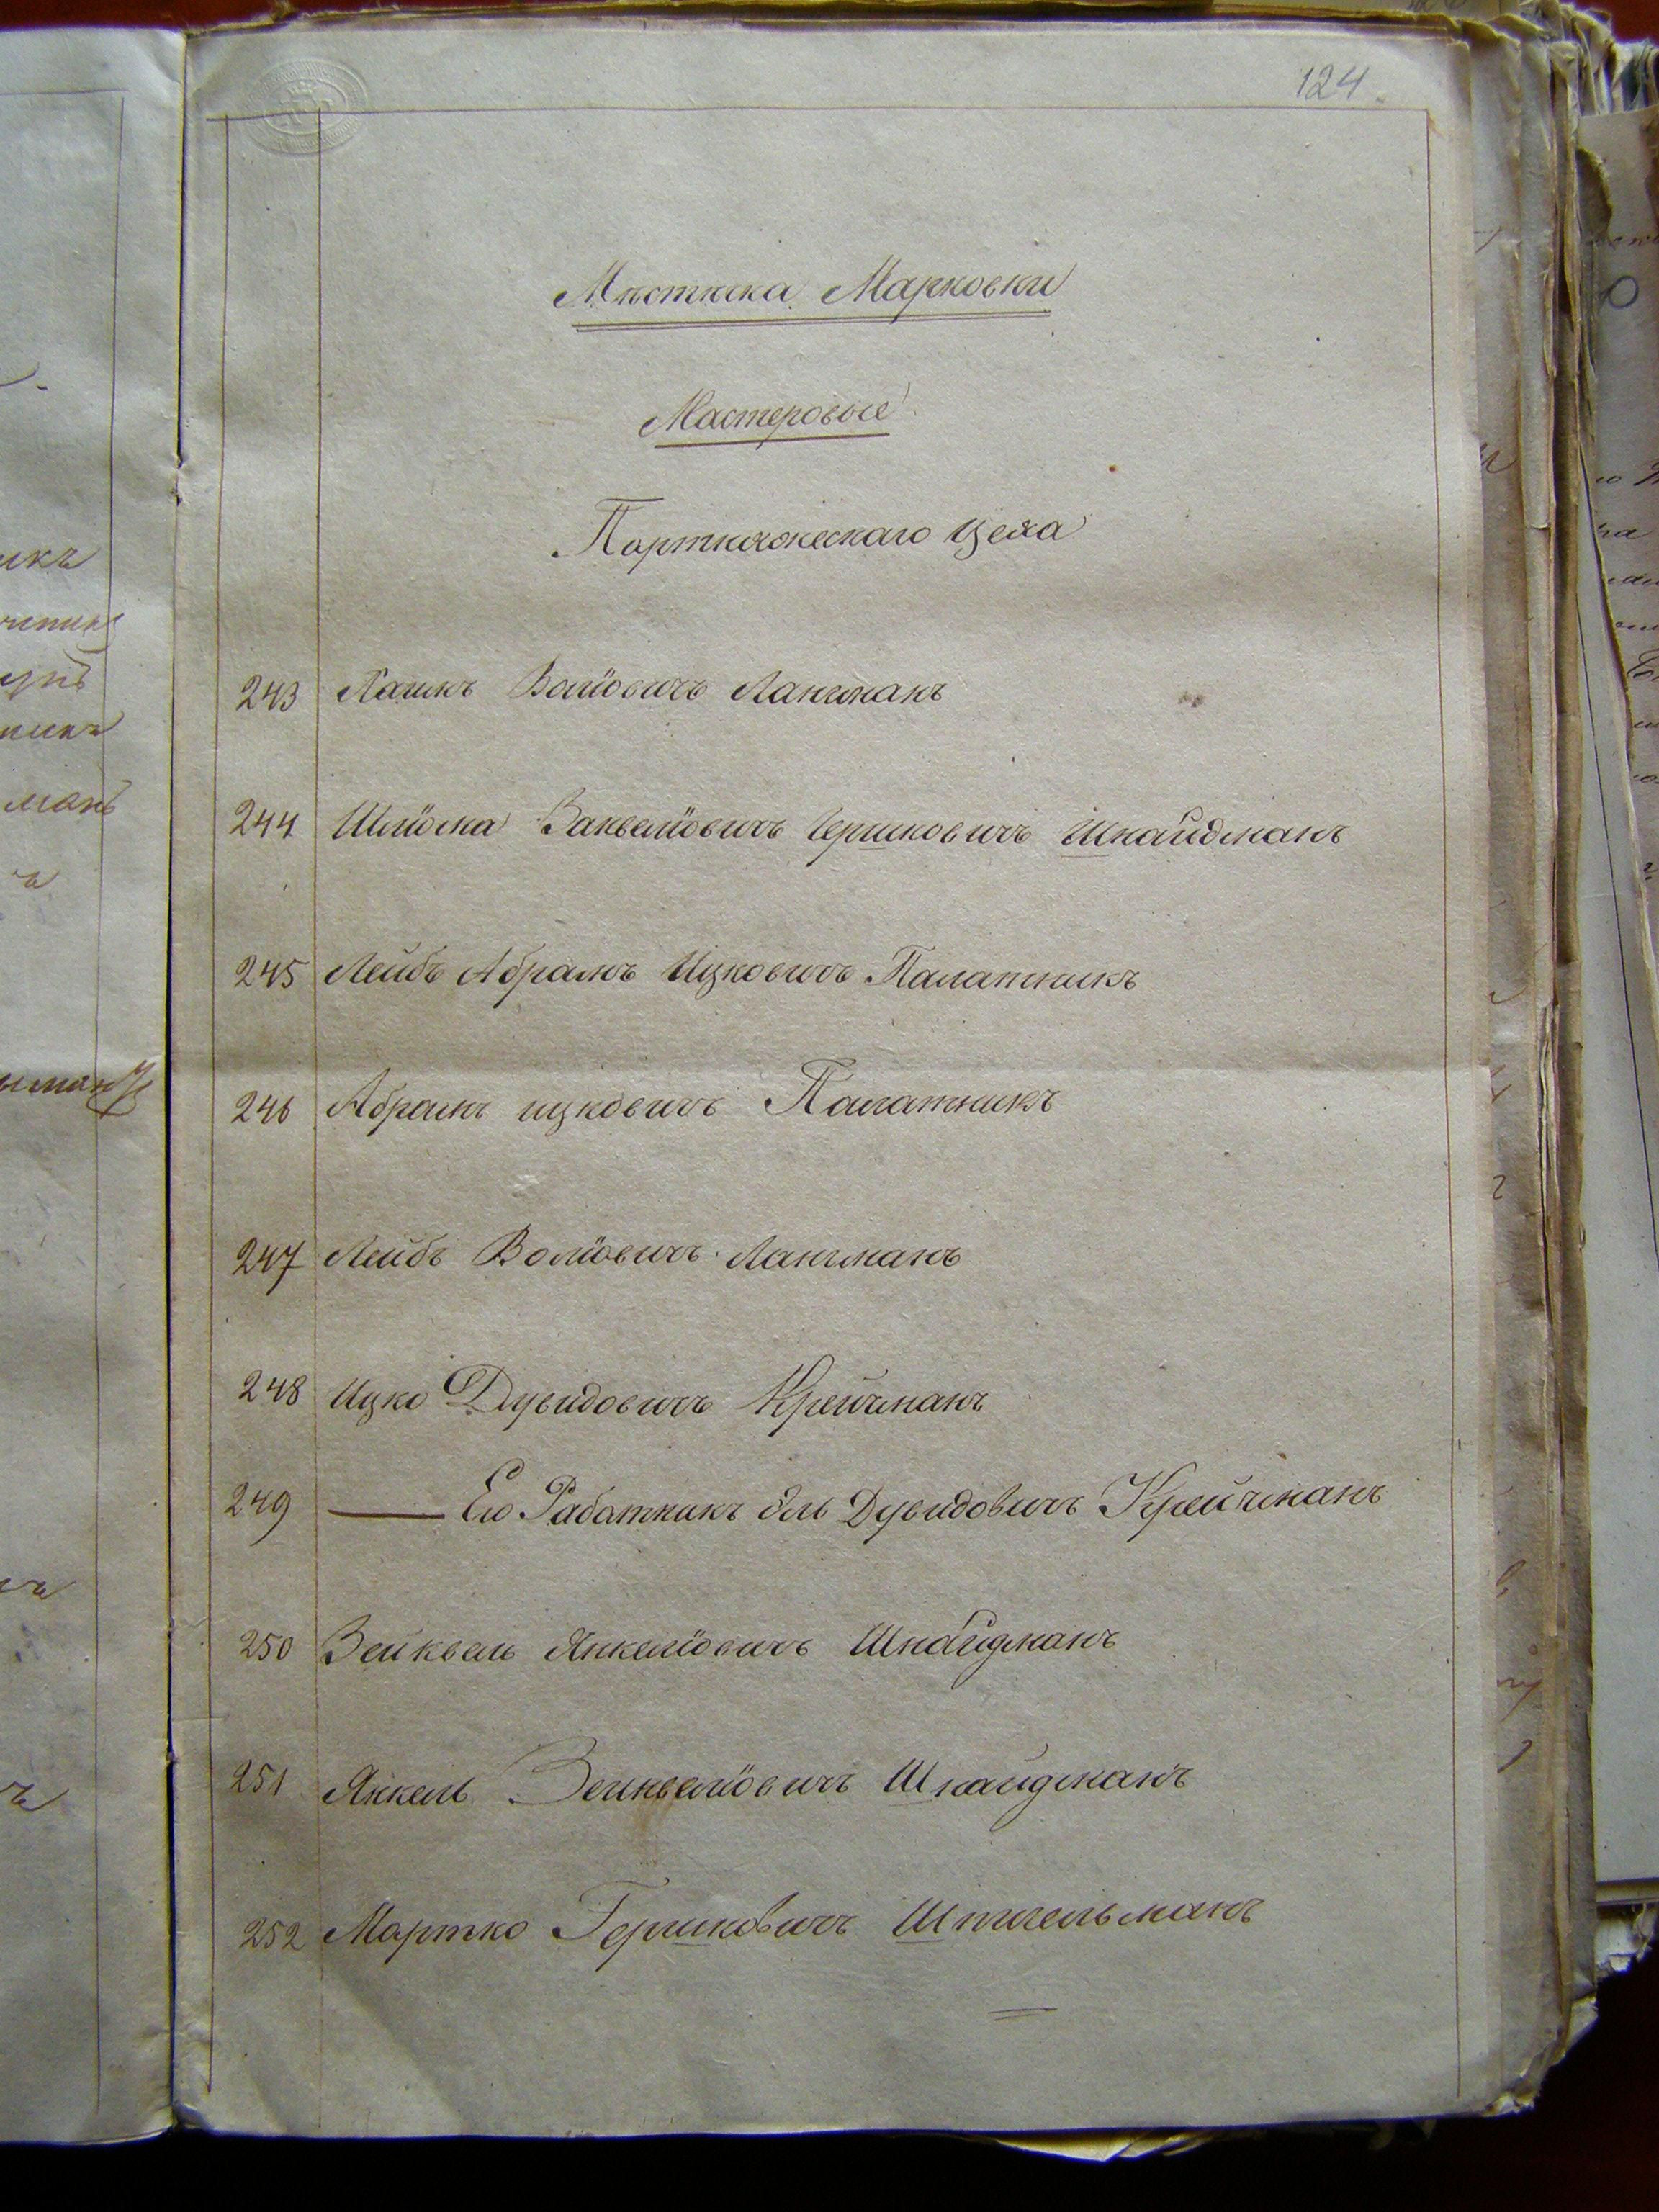 124
Мѣстечка Марковки
Мастеровые
Портняжескаго Цеха
243 Хаимъ Волiовичъ Лангманъ
244 Шлiома Занвелiовичъ Гершковичъ Шнайдманъ
245 Лейбъ Абрамъ Ицковичъ Палатникъ
246 Абрамъ ицковичъ Палатникъ
247 Лейбъ Волiовичъ Лангманъ
248 Ицко Дувидовичъ Крейчманъ
249 Его Работникъ Эль Дувидовичъ Крейчманъ
250 Зейквель Янкелiовичъ Шнайдманъ
251 Янкель Зейнвелiовичъ Шнайдманъ
252 Мортко Гершковичъ